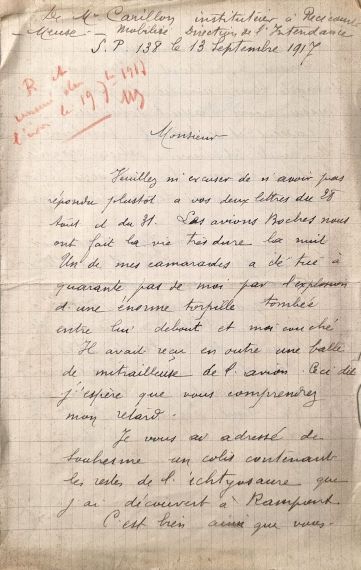 De Mr Carillon instituteur à Récicourt
Meuse - Mobilisé Direction de l'Intendance
S. P. 138 le 13 Septembre 1917
R et
le 19 7bre 1917
Monsieur
Veuillez m'excuser de n'avoir pas
répondu plustot a vos deux lettres du 28
Août et du 31. Les avions Boches nous
ont fait la vie très dure la nuit
Un de mes camarades a été tué à
quarante pas de moi par l'explosion
d'une énorme torpille tombée
entre lui debout et moi couché
Il avait reçu en outre une balle
de mitrailleuse de l'avion. Ceci dit
j'espère que vous comprendrez
mon retard.
Je vous ai adressé de
Souhesme un colis contenant
les restes de l'ichtyosaure que
j'ai découvert à Rampont
C'est bien ainsi que vous